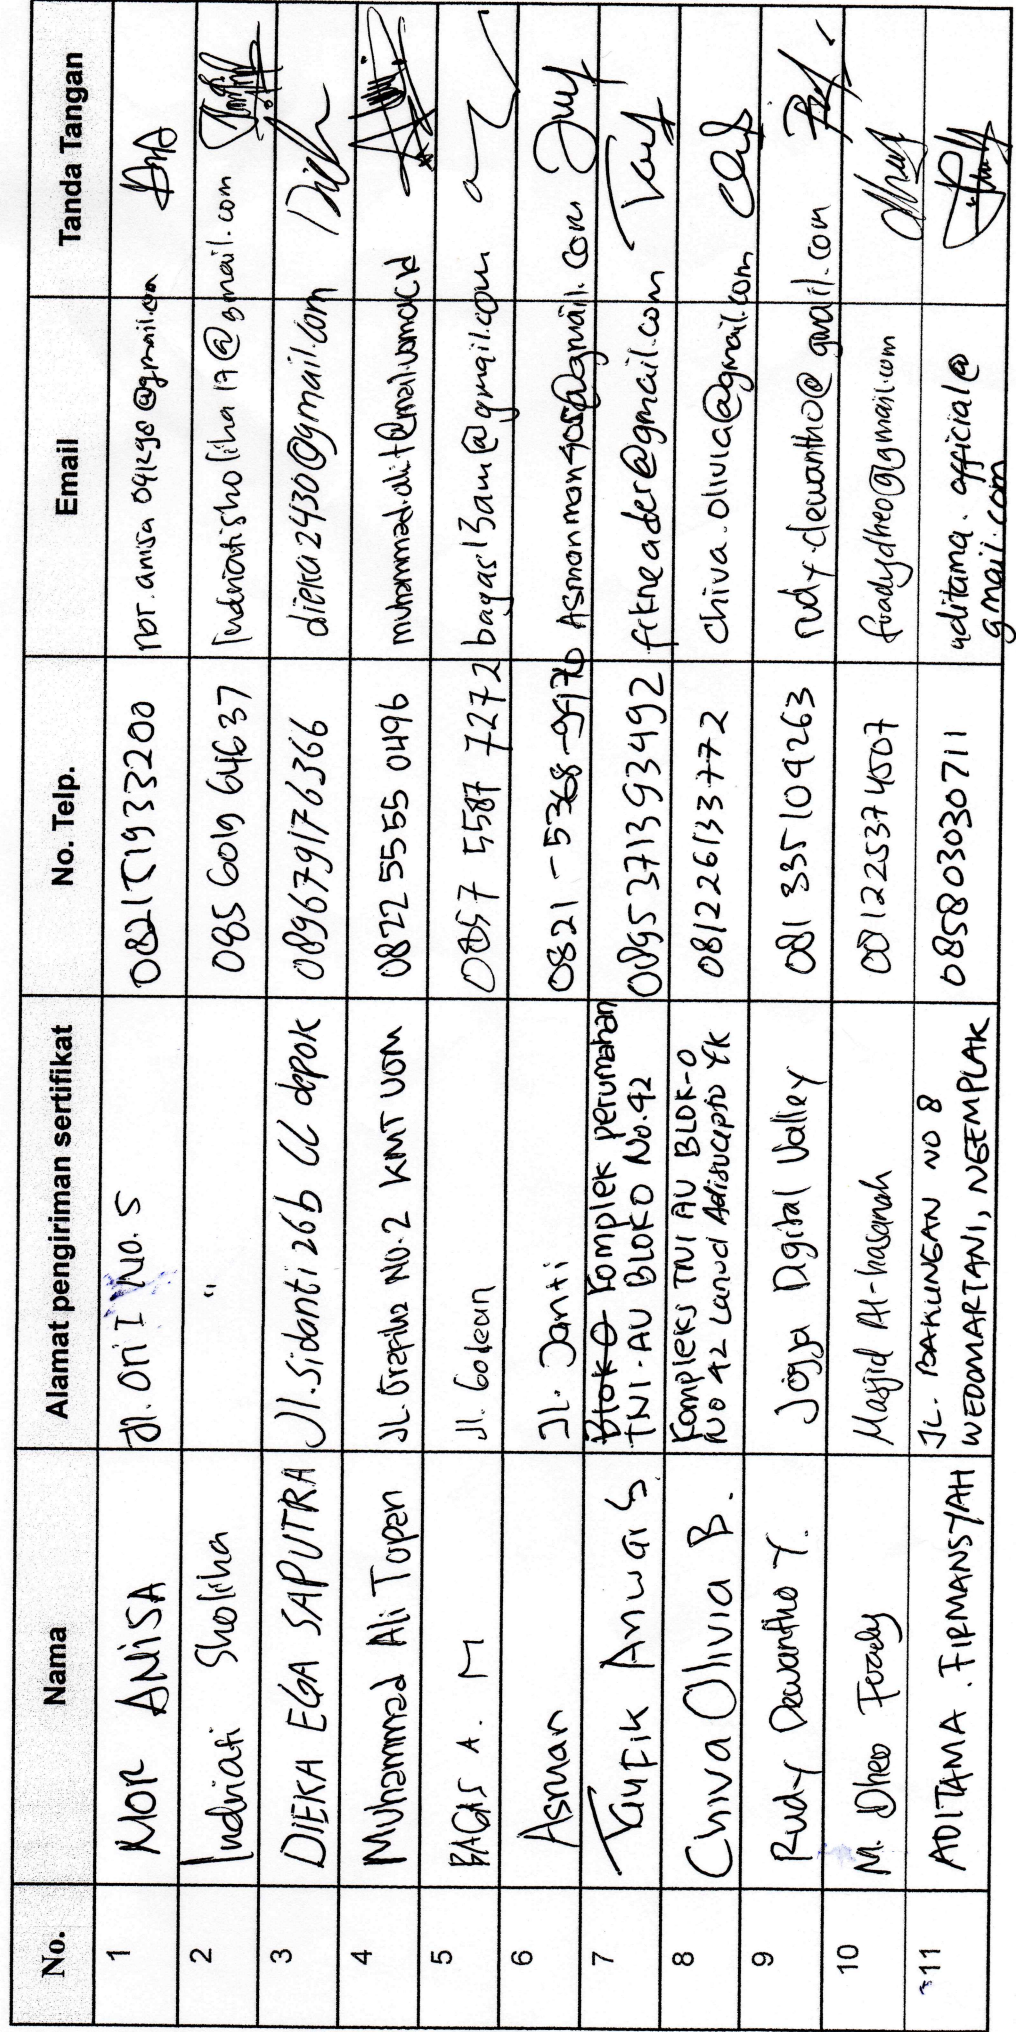 No. Nama Alamat pengiriman sertifikat No. Telp. Email Tanda Tangan
1 NOR ANISA Jl. ORI I No. 5 082151933200 nor.anisa041290@gmail.com
2 Indriati Sholiha " 085 6019 64637 Indriatisholiha19@gmail.com
3 DIEKA EGA SAPUTRA Jl. Sidanti 26b CC depok 089679176366 dieka2430@gmail.com
4 Muhammad Ali Topan JL. Grafika No. 2 KMT UGM 0822 5555 0496
5 BAGAS A. M Jl. Godean 0857 5587 7272 bagas13am@gmail.com
6 Asman Jl. Janti
7 Taufik Anwar S Blok O Komplek perumahan
TNI-AU BLOK O No. 42 0895371393492 fikneader@gmail.com
8 Chiva Olivia B. Kompleks TNI AU BLOK-O
No 42 Lanud Adisucipto YK 081226133772 chiva.olivia@gmail.com
9 Rudy Dewantho Y. Jogja Digital Valley 081 335104263 rudy.dewantho@gmail.com
10 M. Dheo Fuady Masjid Al-hasanah 081225374507 fuadydheo@gmail.com
11 ADITAMA . FIRMANSYAH JL. BAKUNGAN NO 8
WEDOMARTANI, NGEMPLAK 085803030711 aditama.official@
gmail.com